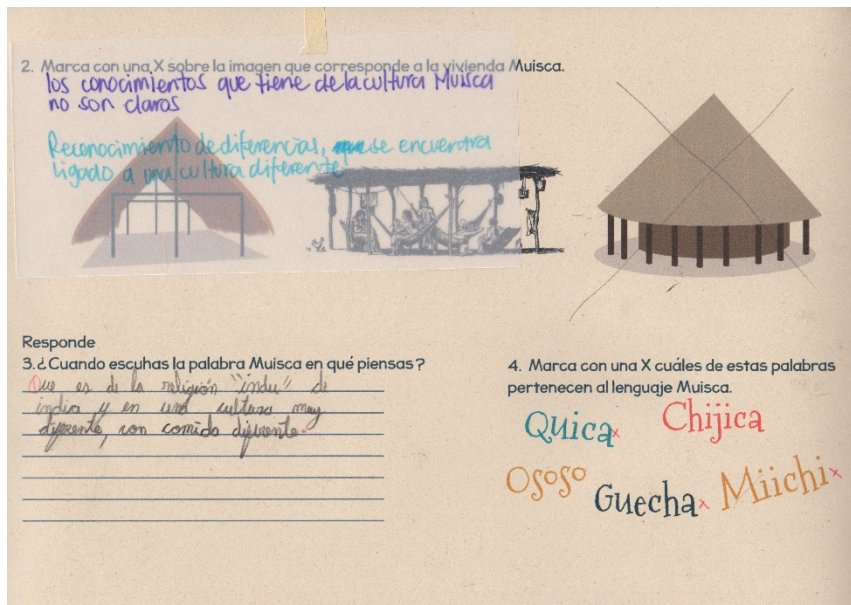 2. Marca con una X sobre la imagen que corresponde a la vivienda Muisca.
los conocimientos que tiene de la cultura Muisca
no son claros
Reconocimiento de diferencias, se encuentra
ligado a una cultura diferente
Responde
3.¿Cuando escuhas la palabra Muisca en qué piensas?
Que es de la religión "indu" de
india y en una cultura muy
diferente, con comida diferente.
4. Marca con una X cuáles de estas palabras
pertenecen al lenguaje Muisca.
Quica x
Chijica
Ososo
Guecha x
Miichi x